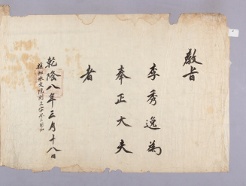 教旨
李秀逸為
奉正大夫
者
乾隆八年三月十八日